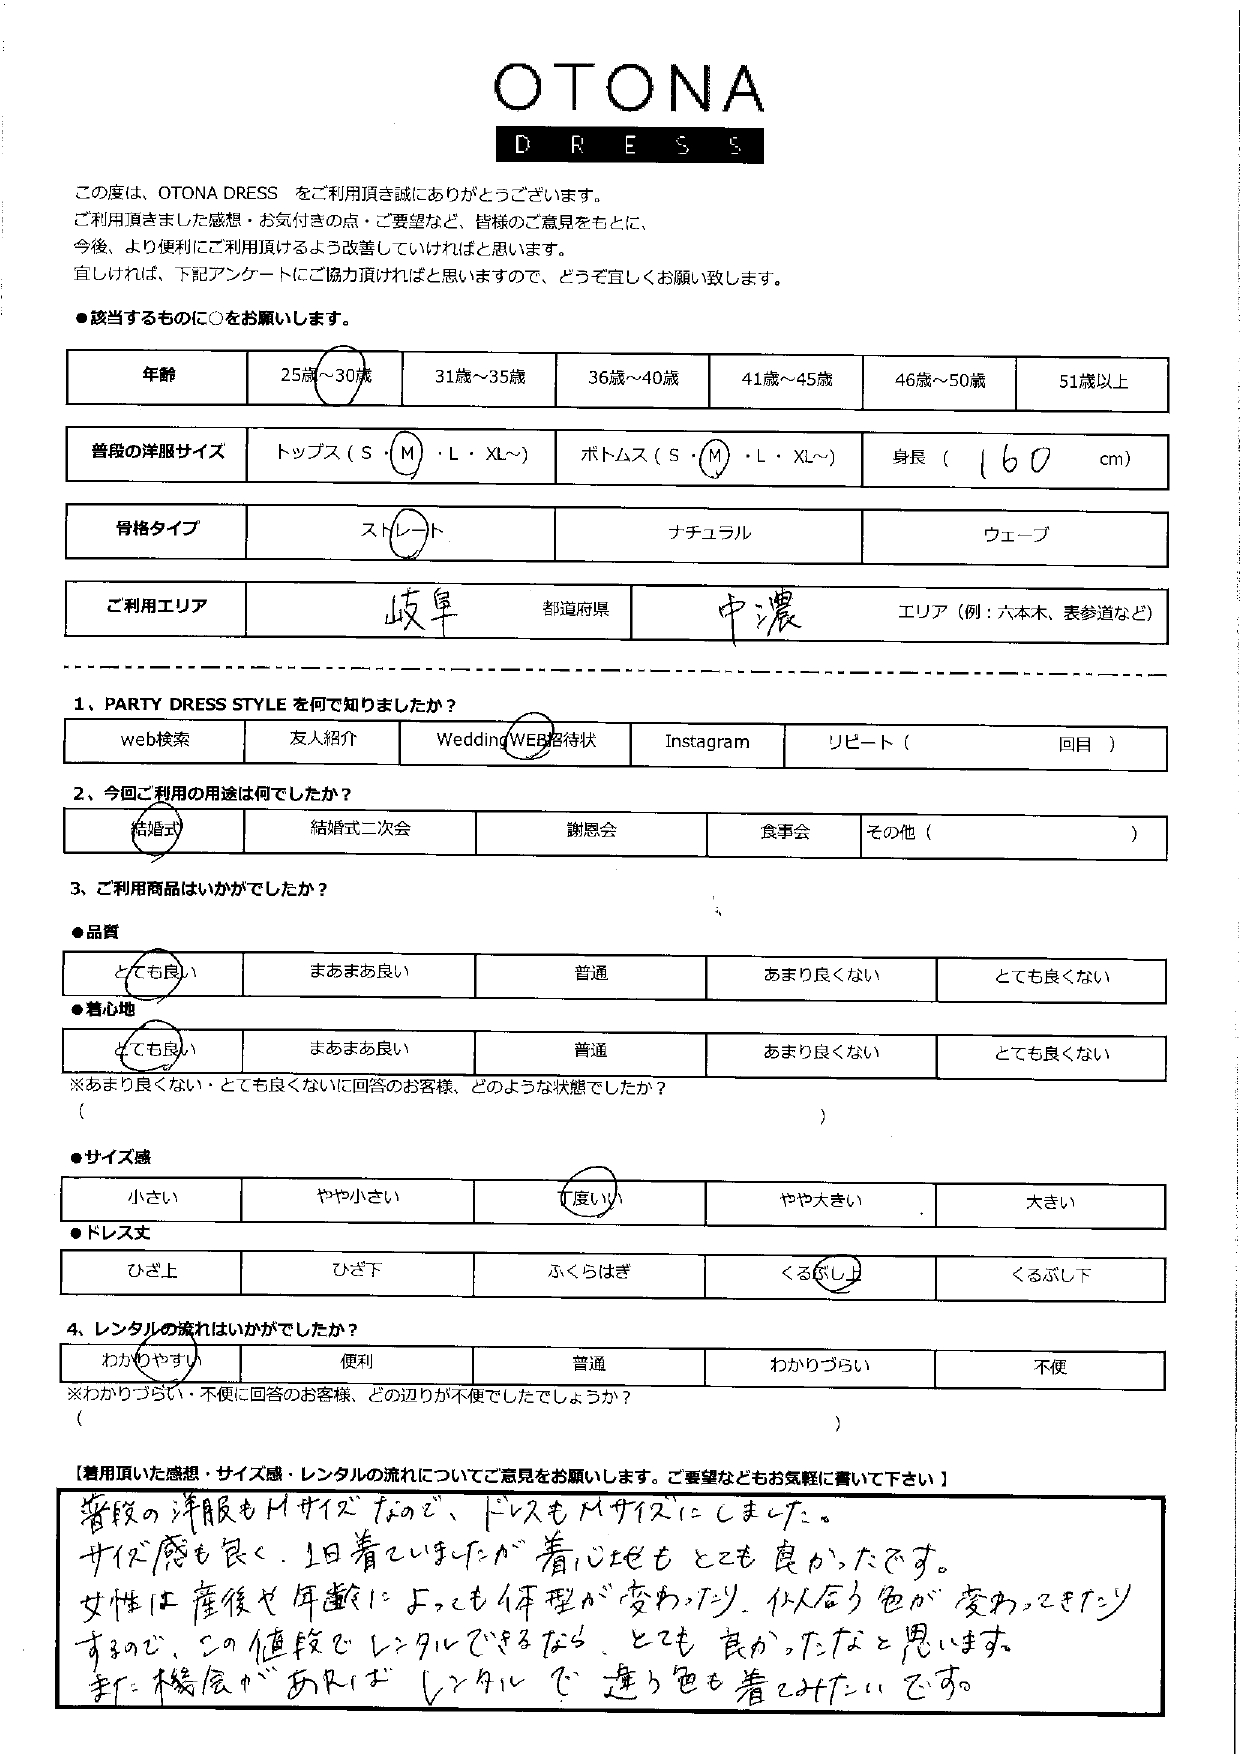 OTONA
DRESS
この度は、OTONA DRESS をご利用頂き誠にありがとうございます。
ご利用頂きました感想・お気付きの点・ご要望など、皆様のご意見をもとに、
今後、より便利にご利用頂けるよう改善していければと思います。
宜しければ、下記アンケートにご協力頂ければと思いますので、どうぞ宜しくお願い致します。
●該当するものに○をお願いします。
年齢 25歳～30歳 31歳～35歳 36歳～40歳 41歳～45歳 46歳～50歳 51歳以上
普段の洋服サイズ トップス ( S ・ M ・ L ・ XL～) ボトムス ( S ・ M ・ L ・ XL～) 身長 ( 160 cm)
骨格タイプ ストレート ナチュラル ウェーブ
ご利用エリア 岐阜 都道府県 中濃 エリア（例：六本木、表参道など）
1、PARTY DRESS STYLE を何で知りましたか？
web検索 友人紹介 WeddingWEB招待状 Instagram リピート ( 回目 )
2、今回ご利用の用途は何でしたか？
結婚式 結婚式二次会 謝恩会 食事会 その他 ( )
3、ご利用商品はいかがでしたか？
●品質
とても良い まあまあ良い 普通 あまり良くない とても良くない
●着心地
とても良い まあまあ良い 普通 あまり良くない とても良くない
※あまり良くない・とても良くないに回答のお客様、どのような状態でしたか？
( )
●サイズ感
小さい やや小さい 丁度いい やや大きい 大きい
●ドレス丈
ひざ上 ひざ下 ふくらはぎ くるぶし上 くるぶし下
4、レンタルの流れはいかがでしたか？
わかりやすい 便利 普通 わかりづらい 不便
※わかりづらい・不便に回答のお客様、どの辺りが不便でしたでしょうか？
( )
【着用頂いた感想・サイズ感・レンタルの流れについてご意見をお願いします。ご要望などもお気軽に書いて下さい】
普段の洋服もMサイズなので、ドレスもMサイズにしました。
サイズ感も良く、1日着ていましたが着心地もとても良かったです。
女性は産後や年齢によっても体型が変わったり、似合う色が変わってきたり
するので、この値段でレンタルできるなら、とても良かったなと思います。
また機会があればレンタルで違う色も着てみたいです。